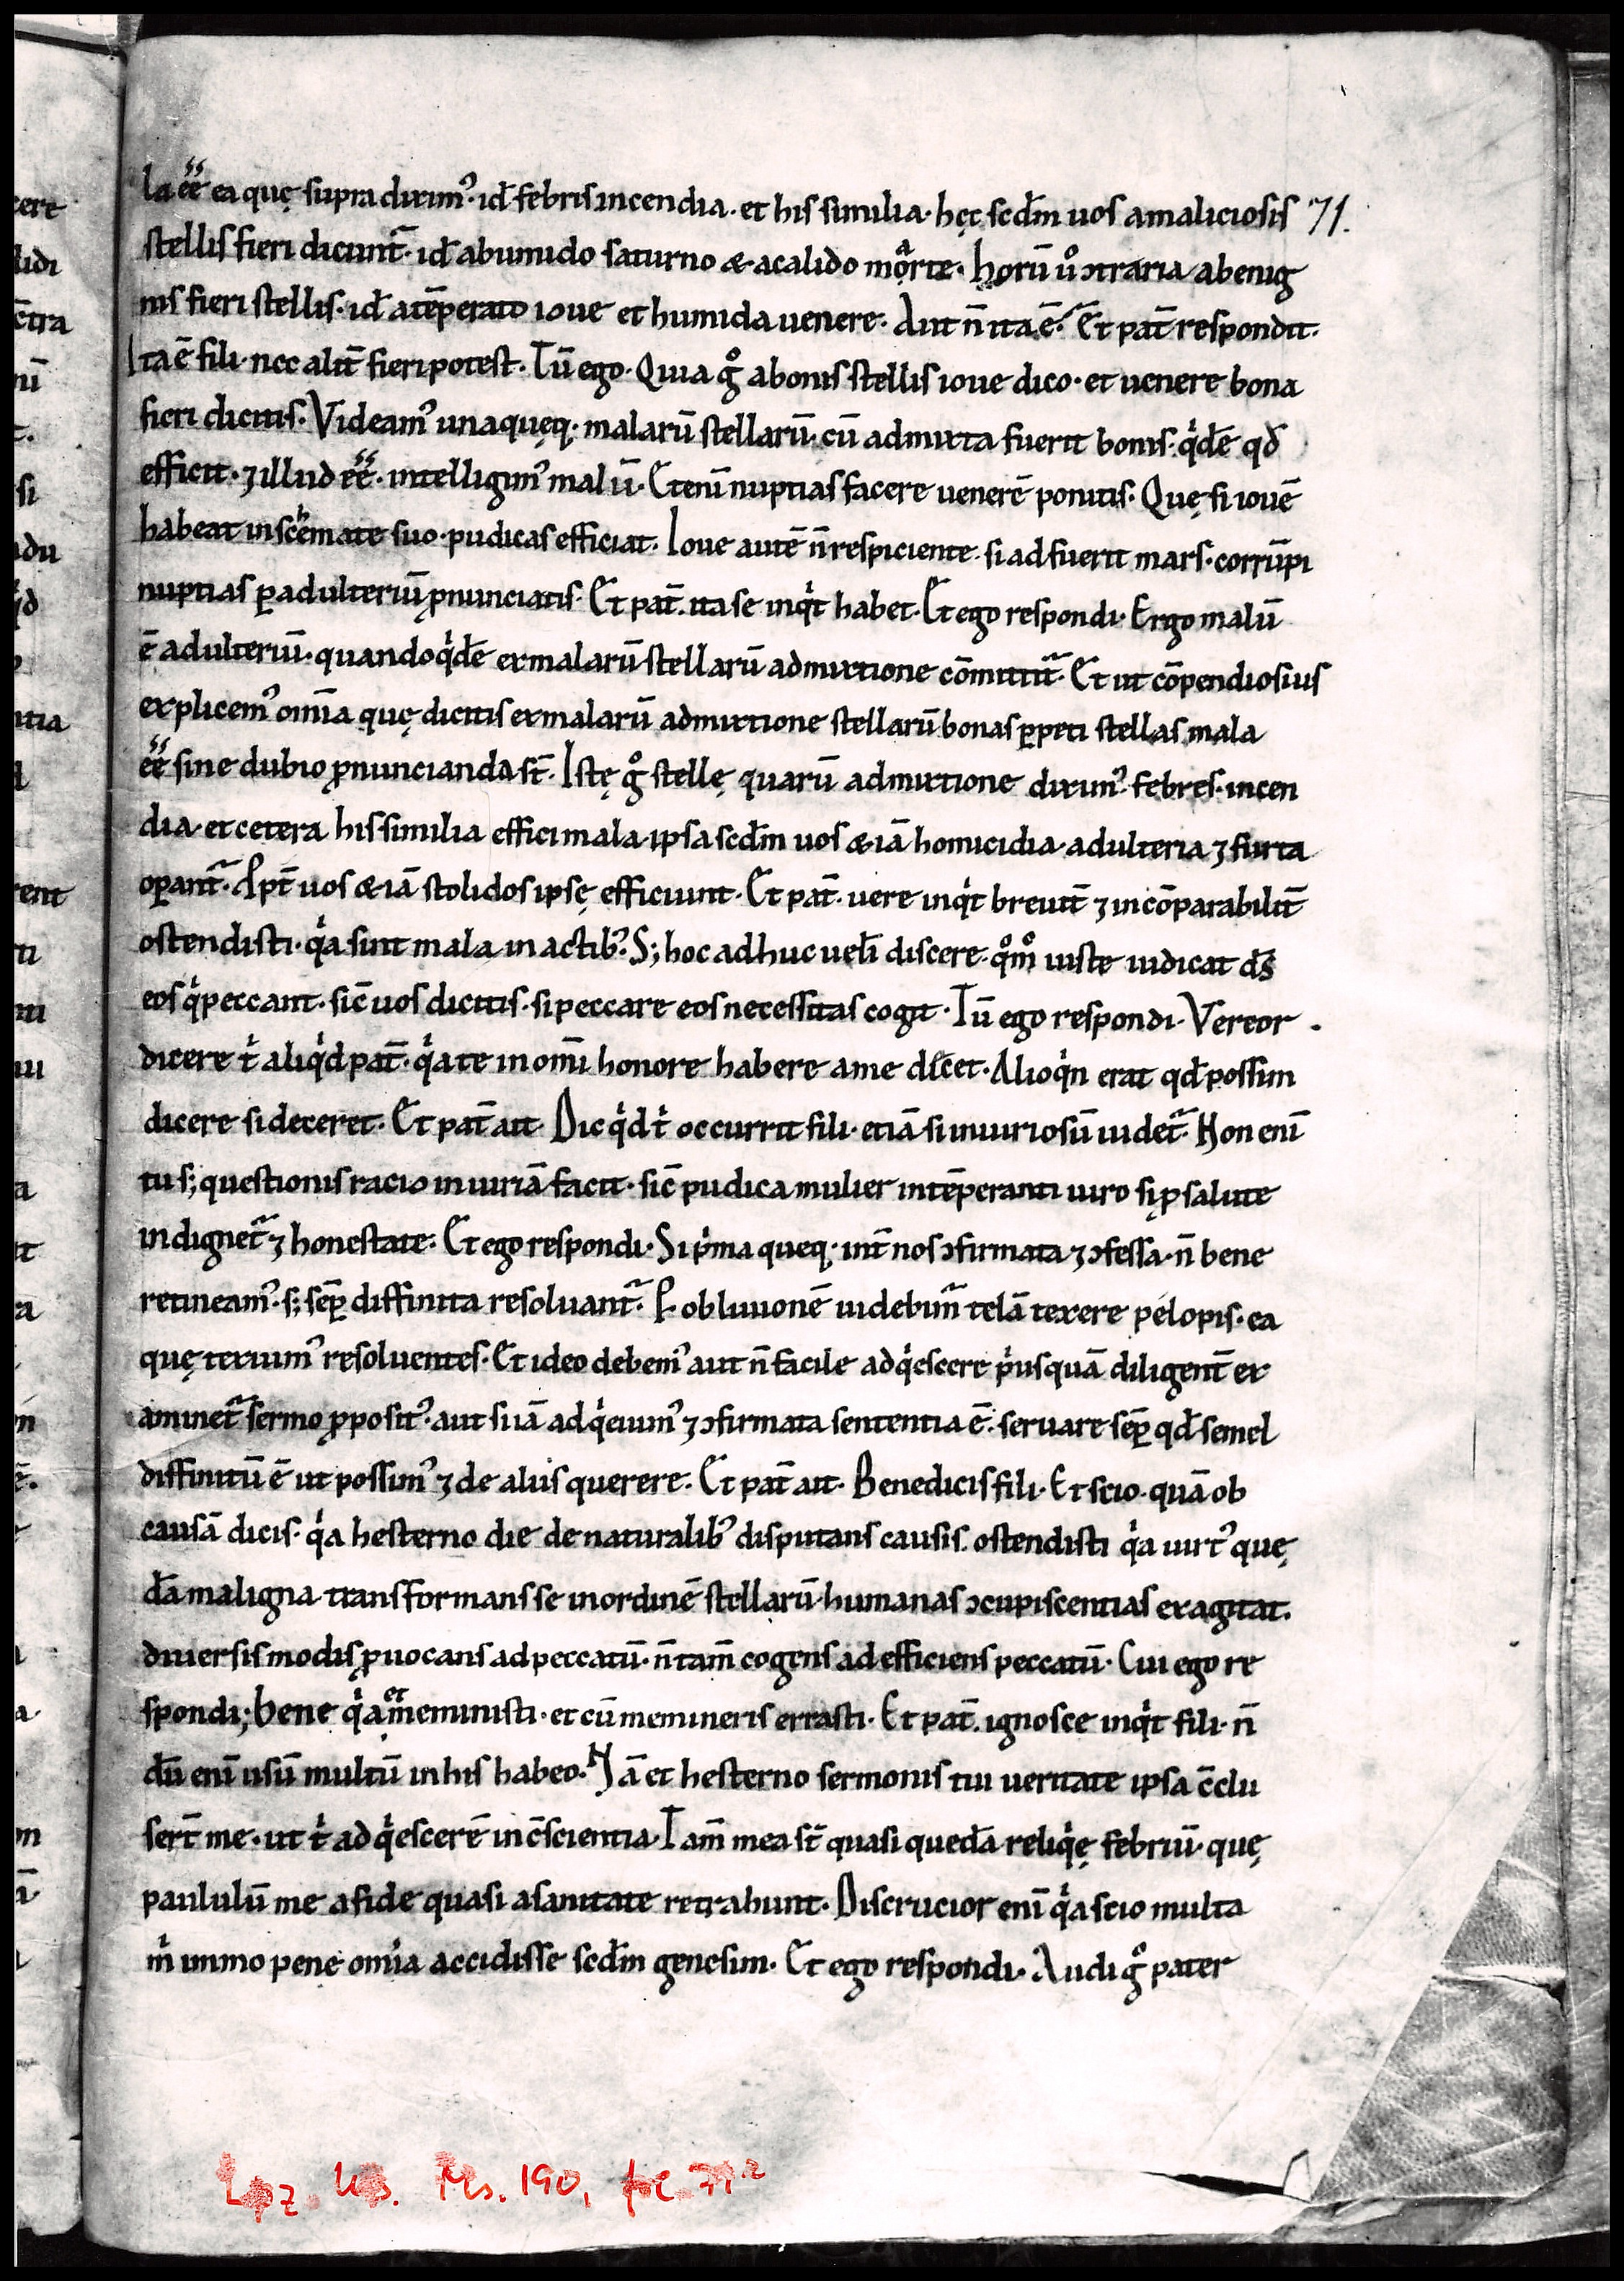 la ee̋ ea quę supra diximꝰ. id̄ febris incendia. et his similia. hęc scd̄m uos a maliciosis 71.
stellis fieri dicunt̄. id̄ ab umido saturno & a calido marte. Horū ů ↄtraria a benig
nis fieri stellis. id̄ a tēperato ioue et humida uenere. Aut n̄ ita ē. Et pat̄ respondit.
Ita ē fili. nec alit̄ fieri potest. Tū ego. Quia g̊ a bonis stellis ioue dico. et uenere bona
fieri dicitis. Videamꝰ unaquęq. malarū stellarū. cū admixta fuerit bonis. qͥdē qd̄
efficit. ⁊ illud ee̋. intelligimꝰ malū. Etenī nuptias facere uenerē ponitis. Quę si iouē
habeat in scͪemate suo. pudicas efficiat. Ioue autē n̄ respiciente. si adfuerit mars. corrūpi
nuptias ꝑ adulteriū ꝓnunciatis. Et pat̄. ita se inqͥt habet. Et ego respondi. Ergo malū
ē adulteriū. quandoqͥdē ex malarū stellarū admixtione cōmittit̄. Et ut cōpendiosius
explicemꝰ omīa quę dicitis ex malarū admixtione stellarū bonas ꝑpeti stellas mala
ee̋ sine dubio ꝓnuncianda st̄. Istę g̊ stellę quarū admixtione diximꝰ. febres. incen
dia. et cetera his similia effici mala. ipsa scd̄m uos & iā homicidia. adulteria ⁊ furta
oꝑant̄. Apt̄ uos & iā stolidos ipsę efficiunt. Et pat̄. uere inqͥt breuit̄ ⁊ incōparabilit̄
ostendisti. qͥa sint mala in actibꝰ. S; hoc adhuc uelī discere. qͦmͦ iuste iudicat ds̄
eos qͥ peccant. sic̄ uos dicitis. si peccare eos necessitas cogit. Tū ego respondi. Vereor.
dicere tͥ aliqͥd pat̄. qͥa te in omī honore habere a me decet. Alioqͥn erat qd̄ possim
dicere si deceret. Et pat̄ ait. Dic qͥd tͥ occurrit fili. etiā si iniuriosū uidet̄. Non enī
tu s; questionis racio iniuriā facit. sic̄ pudica mulier intēperanti uiro si ꝓ salute
indignet̄ ⁊ honestate. Et ego respondi. Si pͥma queq. int̄ nos ↄfirmata ⁊ ↄfessa. n̄ bene
retineamꝰ. s; sep̄ diffinita resoluant̄. P. obliuionē uidebim̄ telā texere pelopis. ea
quę teximꝰ resoluentes. Et ideo debemꝰ aut n̄ facile adqͥescere pͥusquā diligent̄ ex
aminet̄ sermo ꝓpositꝰ. aut si iā adqͥeuimꝰ ⁊ ↄfirmata sententia ē. seruare sep̄ qd̄ semel
diffinitū ē ut possimꝰ ⁊ de aliis querere. Et pat̄ ait. Bene dicis fili. Et scio. quā ob
causā dicis. qͥa hesterno die de naturalibꝰ disputans causis. ostendisti qͥa uirtꝰ quę
dā maligna transformans se in ordinē stellarū. humanas ↄcupiscentias exagitat.
diuersis modis ꝓuocans ad peccatū. n̄ tam̄ cogens ad efficiens peccatū. Cui ego re
spondi; bene qͥa et meministi. et cū memineris errasti. Et pat̄. ignosce inqͥt fili. n̄
dū enī usū multū in his habeo. Nā et hesterno sermonis tui ueritate ipsa c̄clu
sert̄ me. ut tͥ adqͥescerē in c̄scientia. Tam̄ mea st̄ quasi quedā reliqͥę febriū. quę
paululū me a fide quasi a sanitate retrahunt. Discrucior enī qͥa scio multa
mͥ immo pene omīa accidisse scd̄m genesim. Et ego respondi. Audi g̊ pater
Lpz. Ub. Ms. 190, fol. 71ʳ